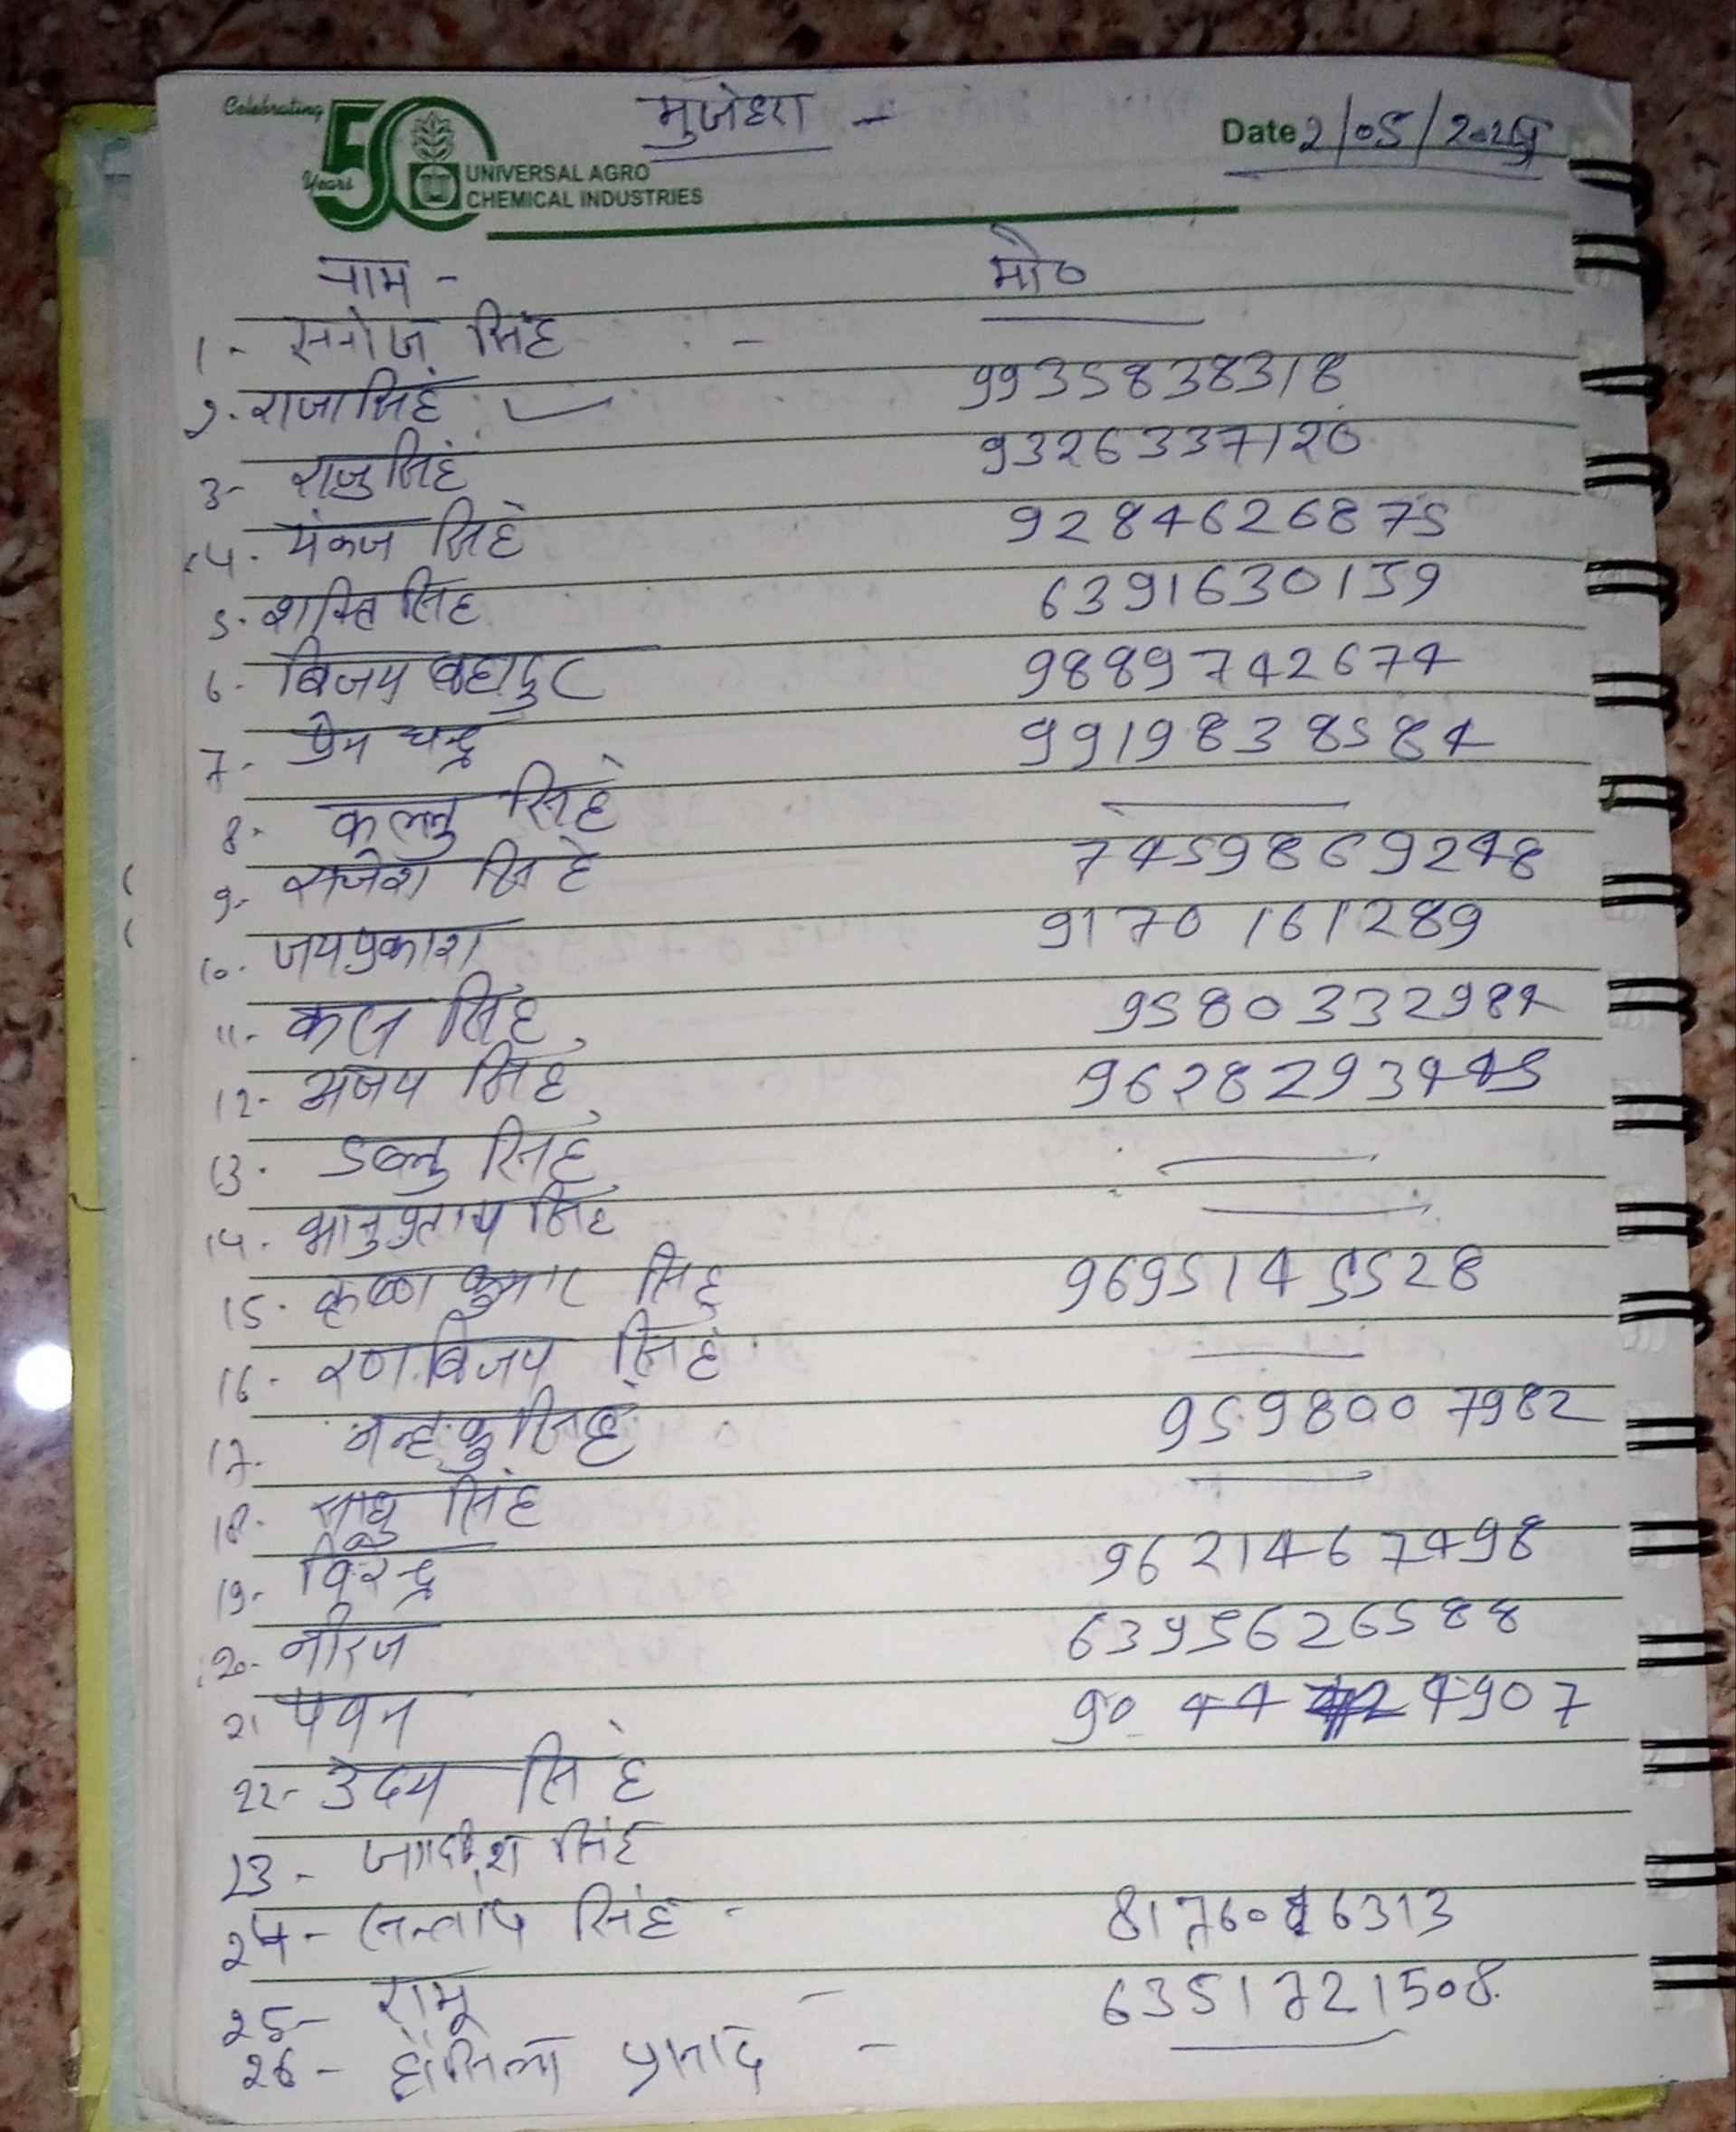 Celebrating
50
Years
UNIVERSAL AGRO
CHEMICAL INDUSTRIES
मुजेहरा -
Date 2/05/2025
नाम - मो०
1- सनोज सिंह -
2- राजा सिहं 9935838318
3- राजु सिहं 9326337120
4- पंकज सिहं 9284626875
5- शक्ति सिंह 6391630159
6- विजय बहादुर 9889742674
7- प्रेम चन्द्र 9919838584
8- कल्लु सिहं
9- राजेश सिहं 7459869248
10- जयप्रकाश 9170161289
11- सिंह 9580332984
12- अजय सिंह 9628293445
13- डब्लु सिंह
14- भानुप्रताप सिंह
15- कृष्णा कुमार सिंह 9695145528
16- रण विजय सिंह
17- नन्हकु सिहं 9598007982
18- साधु सिंह
19- विरेन्द्र 9621467498
20- नीरज 6395626588
21 पवन 90 44 24907
22- उदय सिहं
23- जगदीश सिंह
24- सन्तोष सिंह - 8176016313
25- रामू - 6351721508
26- हौसिला प्रसाद -